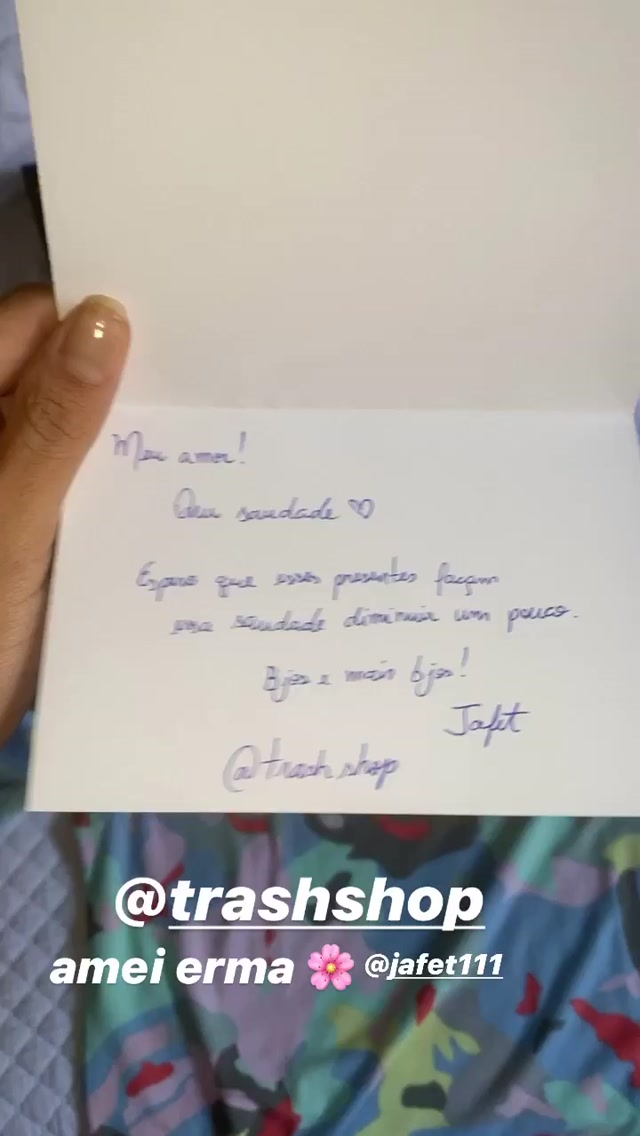 Meu amor!
Que saudade ♡
Espero que esses presentes façam
essa saudade diminuir um pouco.
Bjos e mais bjos!
Jafet
@trash shop
@trashshop
amei erma 🌸 @jafet111